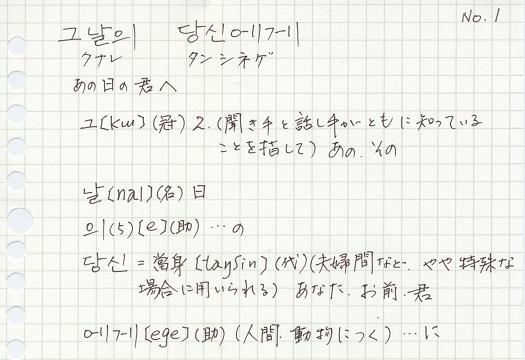 No. 1
그 날의 당신에게
クナレ タンシネゲ
あの日の君へ
그 [kɯ] (冠) 2. (聞き手と話し手がともに知っている
ことを指して) あの. その
날 [nal] (名) 日
의 (5) [e] (助) … の
당신 = 當身 [taŋʃin] (代) (夫婦間など. やや特殊な
場合に用いられる) あなた. お前. 君
에게 [ege] (助) (人間. 動物につく) … に